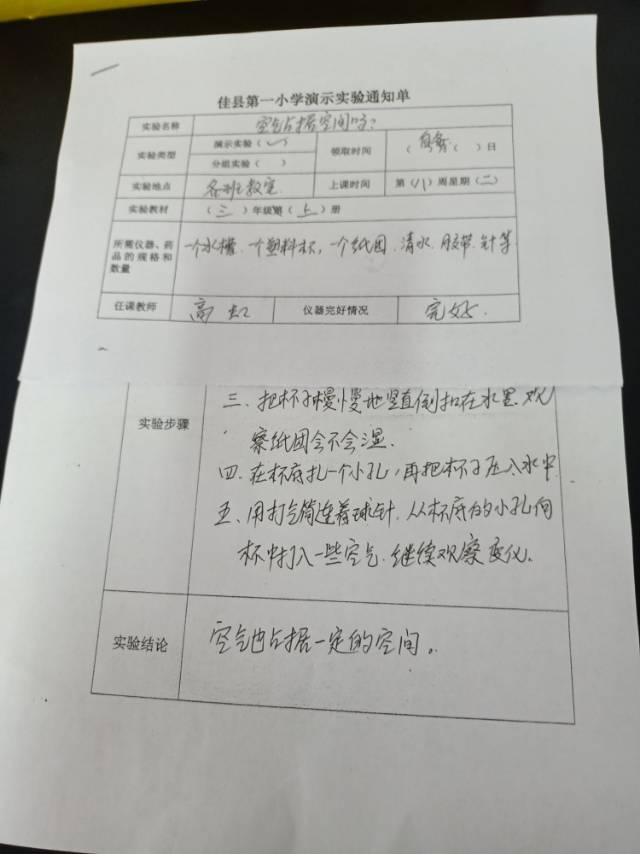 佳县第一小学演示实验通知单
实验名称 空气占据空间吗?
实验类型 演示实验(✓) 领取时间 ( ( )日
分组实验( )
实验地点 各班教室 上课时间 第(八)周星期(二)
实验教材 (三)年级第(上)册
所需仪器、药 一个水槽、一个塑料杯,一个纸团、清水、胶带、针等
品的规格和
数量
任课教师 高虹 仪器完好情况 完好.
三、把杯子慢慢地竖直倒扣在水里、观
实验步骤 察纸团会不会湿.
四、在杯底扎一个小孔,再把杯子压入水中
五、用打气筒连着球针,从杯底的小孔向
杯中打入一些空气,继续观察变化。
实验结论 空气也占据一定的空间。